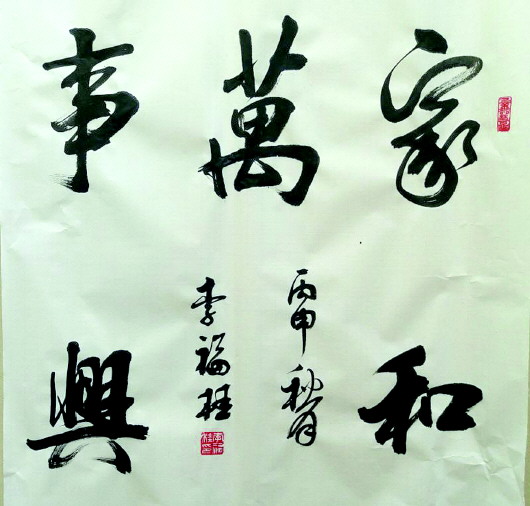 家和
萬
事興
丙申秋月
李福桂